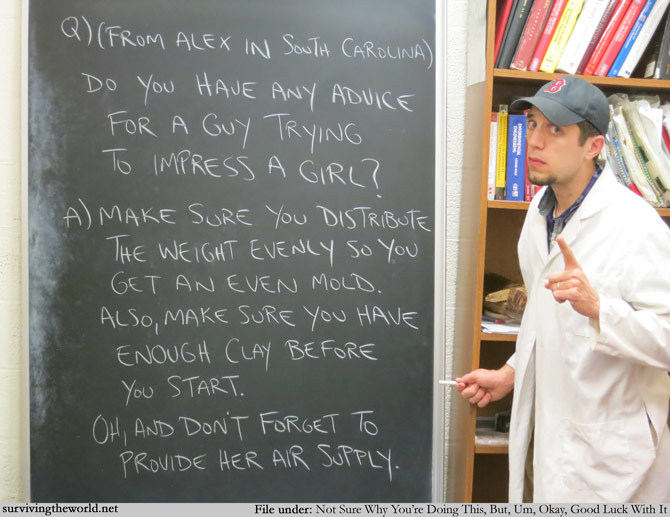 Q) (FROM ALEX IN SOUTH CAROLINA)
DO YOU HAVE ANY ADVICE
FOR A GUY TRYING
TO IMPRESS A GIRL?
A) MAKE SURE YOU DISTRIBUTE
THE WEIGHT EVENLY SO YOU
GET AN EVEN MOLD.
ALSO, MAKE SURE YOU HAVE
ENOUGH CLAY BEFORE
YOU START.
OH, AND DON'T FORGET TO
PROVIDE HER AIR SUPPLY.
B
survivingtheworld.net
File under: Not Sure Why You're Doing This, But, Um, Okay, Good Luck With It